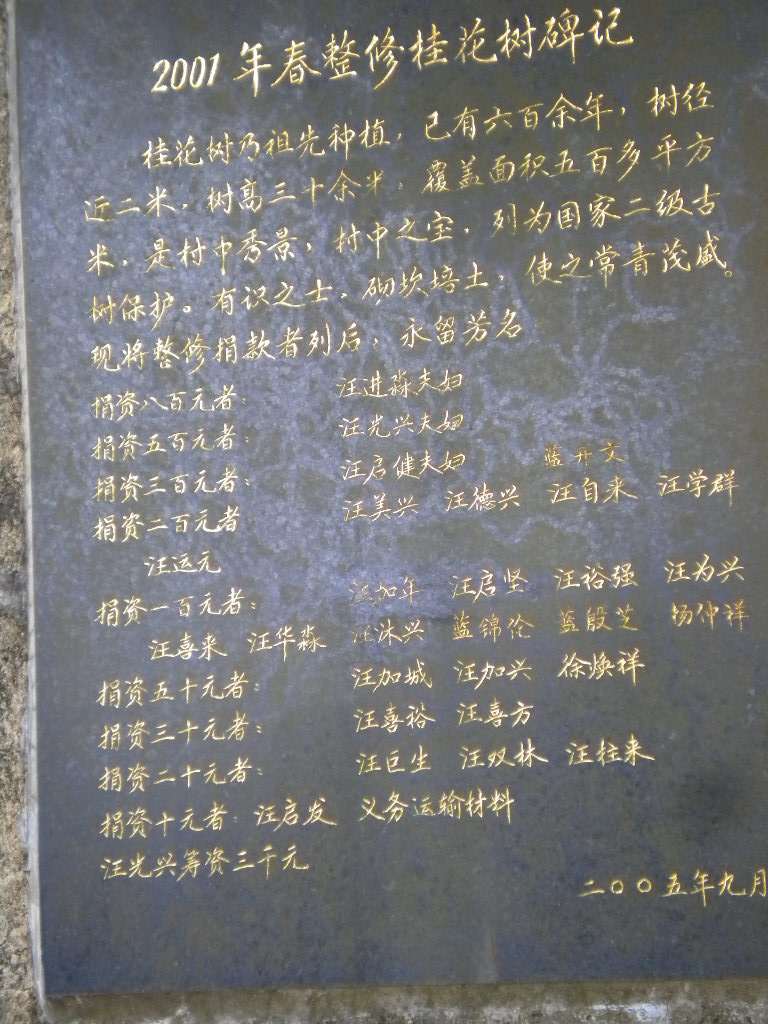 2001年春整修桂花树碑记
桂花树乃祖先种植，已有六百余年，树径
近二米，树高三十余米，覆盖面积五百多平方
米，是村中秀景，村中之宝，列为国家二级古
树保护。有识之士，砌坎培土，使之常青茂盛。
现将整修捐款者列后，永留芳名。
捐资八百元者： 汪进淼夫妇
捐资五百元者： 汪光兴夫妇
捐资三百元者： 汪启健夫妇 蓝开文
捐资二百元者 汪美兴 汪德兴 汪自来 汪学群
汪运元
捐资一百元者： 汪加年 汪启坚 汪裕强 汪为兴
汪喜来 汪华淼 汪沐兴 蓝锦伦 蓝殷芝 杨仲祥
捐资五十元者： 汪加城 汪加兴 徐焕祥
捐资三十元者： 汪喜裕 汪喜方
捐资二十元者： 汪巨生 汪双林 汪柱来
捐资十元者： 汪启发 义务运输材料
汪光兴筹资三千元
二〇〇五年九月